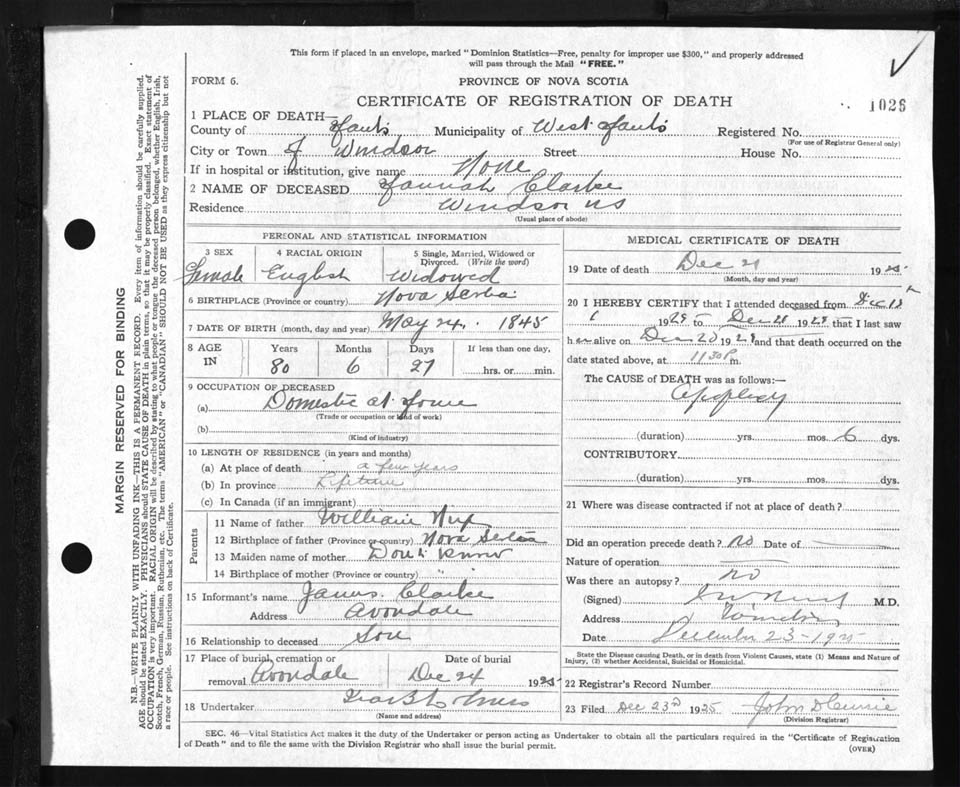 This form if placed in an envelope, marked "Dominion Statistics—Free, penalty for improper use $300," and properly addressed
will pass through the Mail "FREE."
FORM 6.
PROVINCE OF NOVA SCOTIA
CERTIFICATE OF REGISTRATION OF DEATH
1026
1 PLACE OF DEATH—
County of Hants Municipality of West Hants Registered No.
(For use of Registrar General only)
City or Town of Windsor Street House No.
If in hospital or institution, give name None
2 NAME OF DECEASED Hannah Clarke
Residence Windsor NS
(Usual place of abode)
PERSONAL AND STATISTICAL INFORMATION
3 SEX 4 RACIAL ORIGIN 5 Single, Married, Widowed or
Divorced. (Write the word)
Female English Widowed
6 BIRTHPLACE (Province or country) Nova Scotia
7 DATE OF BIRTH (month, day and year) May 24. 1845
8 AGE IN Years Months Days If less than one day,
80 6 27 hrs. or min.
9 OCCUPATION OF DECEASED
(a) Domestic at Home
(Trade or occupation or kind of work)
(b)
(Kind of industry)
10 LENGTH OF RESIDENCE (in years and months)
(a) At place of death a few years
(b) In province Lifetime
(c) In Canada (if an immigrant)
Parents
11 Name of father William
12 Birthplace of father (Province or country) Nova Scotia
13 Maiden name of mother Don't know
14 Birthplace of mother (Province or country) " "
15 Informant's name James Clarke
Address Avondale
16 Relationship to deceased Son
17 Place of burial, cremation or Date of burial
removal Avondale Dec 24 1925
18 Undertaker
(Name and address)
MEDICAL CERTIFICATE OF DEATH
19 Date of death Dec 21 1925
(Month, day and year)
20 I HEREBY CERTIFY that I attended deceased from Dec
1925 to Dec 1925 that I last saw
her alive on Dec 20 1925 and that death occurred on the
date stated above, at 11 30 P m.
The CAUSE of DEATH was as follows:—
Apoplexy
(duration) yrs. mos. 6 dys.
CONTRIBUTORY
(duration) yrs. mos. dys.
21 Where was disease contracted if not at place of death?
Did an operation precede death? No Date of
Nature of operation
Was there an autopsy? No
(Signed) M.D.
Address Windsor
Date December 23-1925
State the Disease causing Death, or in death from Violent Causes, state (1) Means and Nature of
Injury, (2) whether Accidental, Suicidal or Homicidal.
22 Registrar's Record Number
23 Filed Dec 23rd 1925 John
(Division Registrar)
SEC. 46—Vital Statistics Act makes it the duty of the Undertaker or person acting as Undertaker to obtain all the particulars required in the "Certificate of Registration
of Death" and to file the same with the Division Registrar who shall issue the burial permit.
(OVER)
MARGIN RESERVED FOR BINDING
N.B.—WRITE PLAINLY WITH UNFADING INK—THIS IS A PERMANENT RECORD. Every item of information should be carefully supplied.
AGE should be stated EXACTLY. PHYSICIANS should STATE CAUSE OF DEATH in plain terms, so that it may be properly classified. Exact statement of
OCCUPATION is very important. RACIAL ORIGIN will be described by stating to what people or tongue the deceased person belonged, whether English, Irish,
Scotch, French, German, Russian, Ruthenian, etc. The terms "AMERICAN" or "CANADIAN" SHOULD NOT BE USED as they express citizenship but not
a race or people. See instructions on back of Certificate.